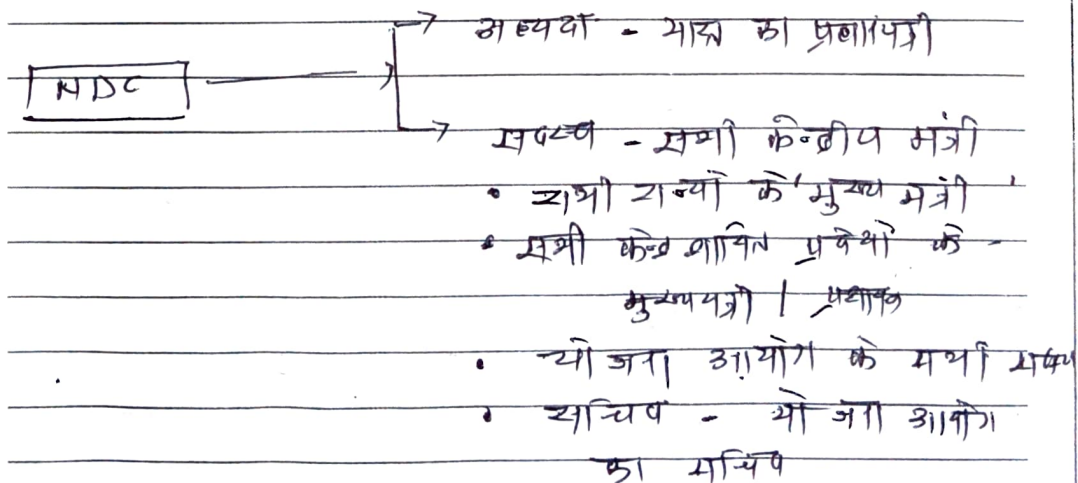 → अध्यक्ष - भारत का प्रधानमंत्री
NDC
→ सदस्य - सभी केन्द्रीय मंत्री
• सभी राज्यों के मुख्य मंत्री
• सभी केन्द्र शासित प्रदेशों के -
मुख्यमंत्री | प्रशासक
• योजना आयोग के सभी सदस्य
• सचिव - योजना आयोग
का सचिव